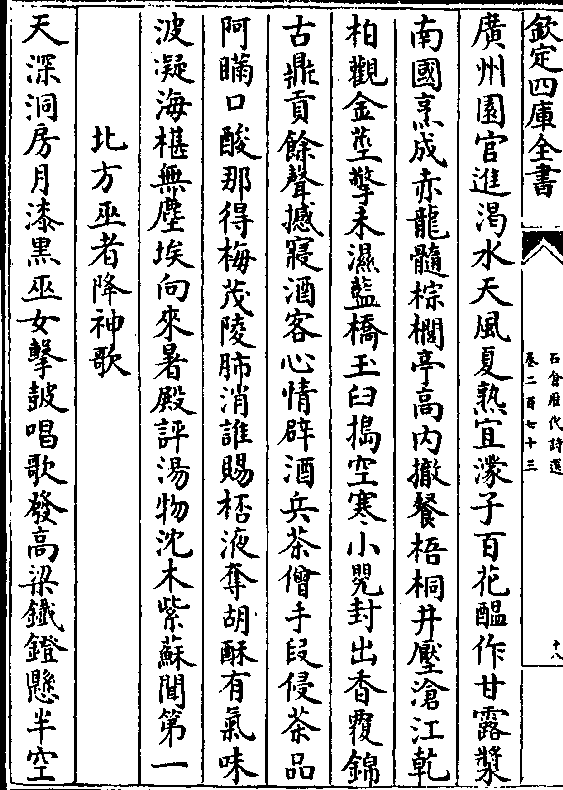 欽定四庫全書
石倉歷代詩選
卷二百七十三
十八
廣州園官進渴水天風夏熟宜濛子百花醖作甘露漿
南國烹成赤龍髓棕櫚亭高内撤餐梧桐井壓滄江乾
柏觀金莖擎未濕藍橋玉臼搗空寒小罌封出香覆錦
古鼎貢餘聲撼寢酒客心情辟酒兵茶僧手段侵茶品
阿瞞口酸那得梅茂陵肺消誰賜桮液奪胡酥有氣味
波凝海椹無塵埃向來暑殿評湯物沈木紫蘇聞第一
北方巫者降神歌
天深洞房月漆黒巫女擊皷唱歌發高梁鐵鐙懸半空